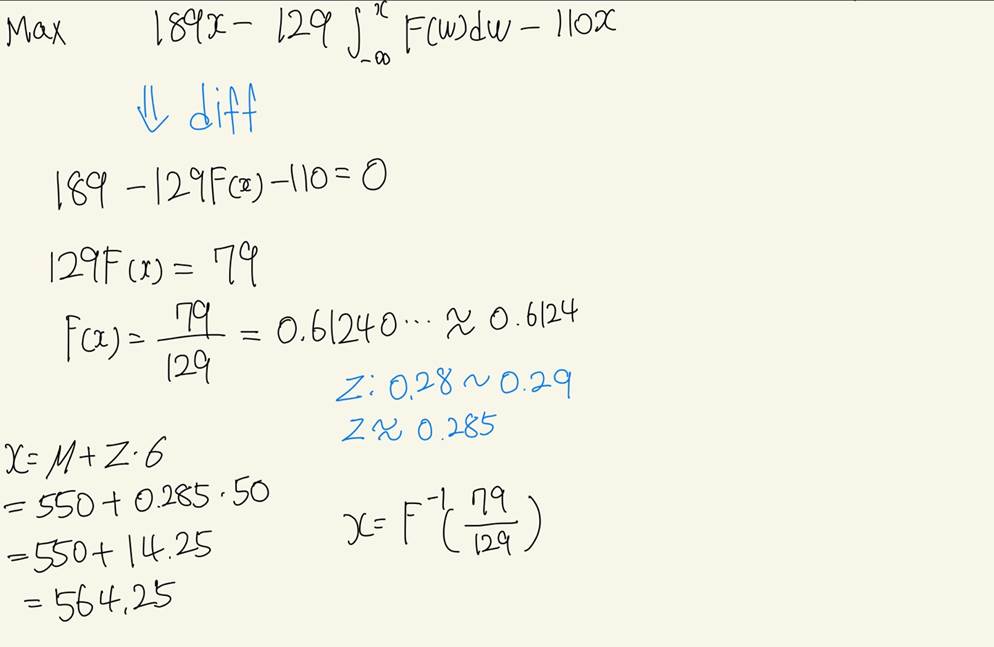 Max 189x - 129 ∫_{-∞}^{x} F(w)dw - 110x
⇓ diff
189 - 129F(x) - 110 = 0
129F(x) = 79
F(x) = 79/129 = 0.61240... ≈ 0.6124
Z: 0.28 ~ 0.29
Z ≈ 0.285
x = M + Z·6
= 550 + 0.285·50
= 550 + 14.25
= 564.25
x = F^{-1}(79/129)